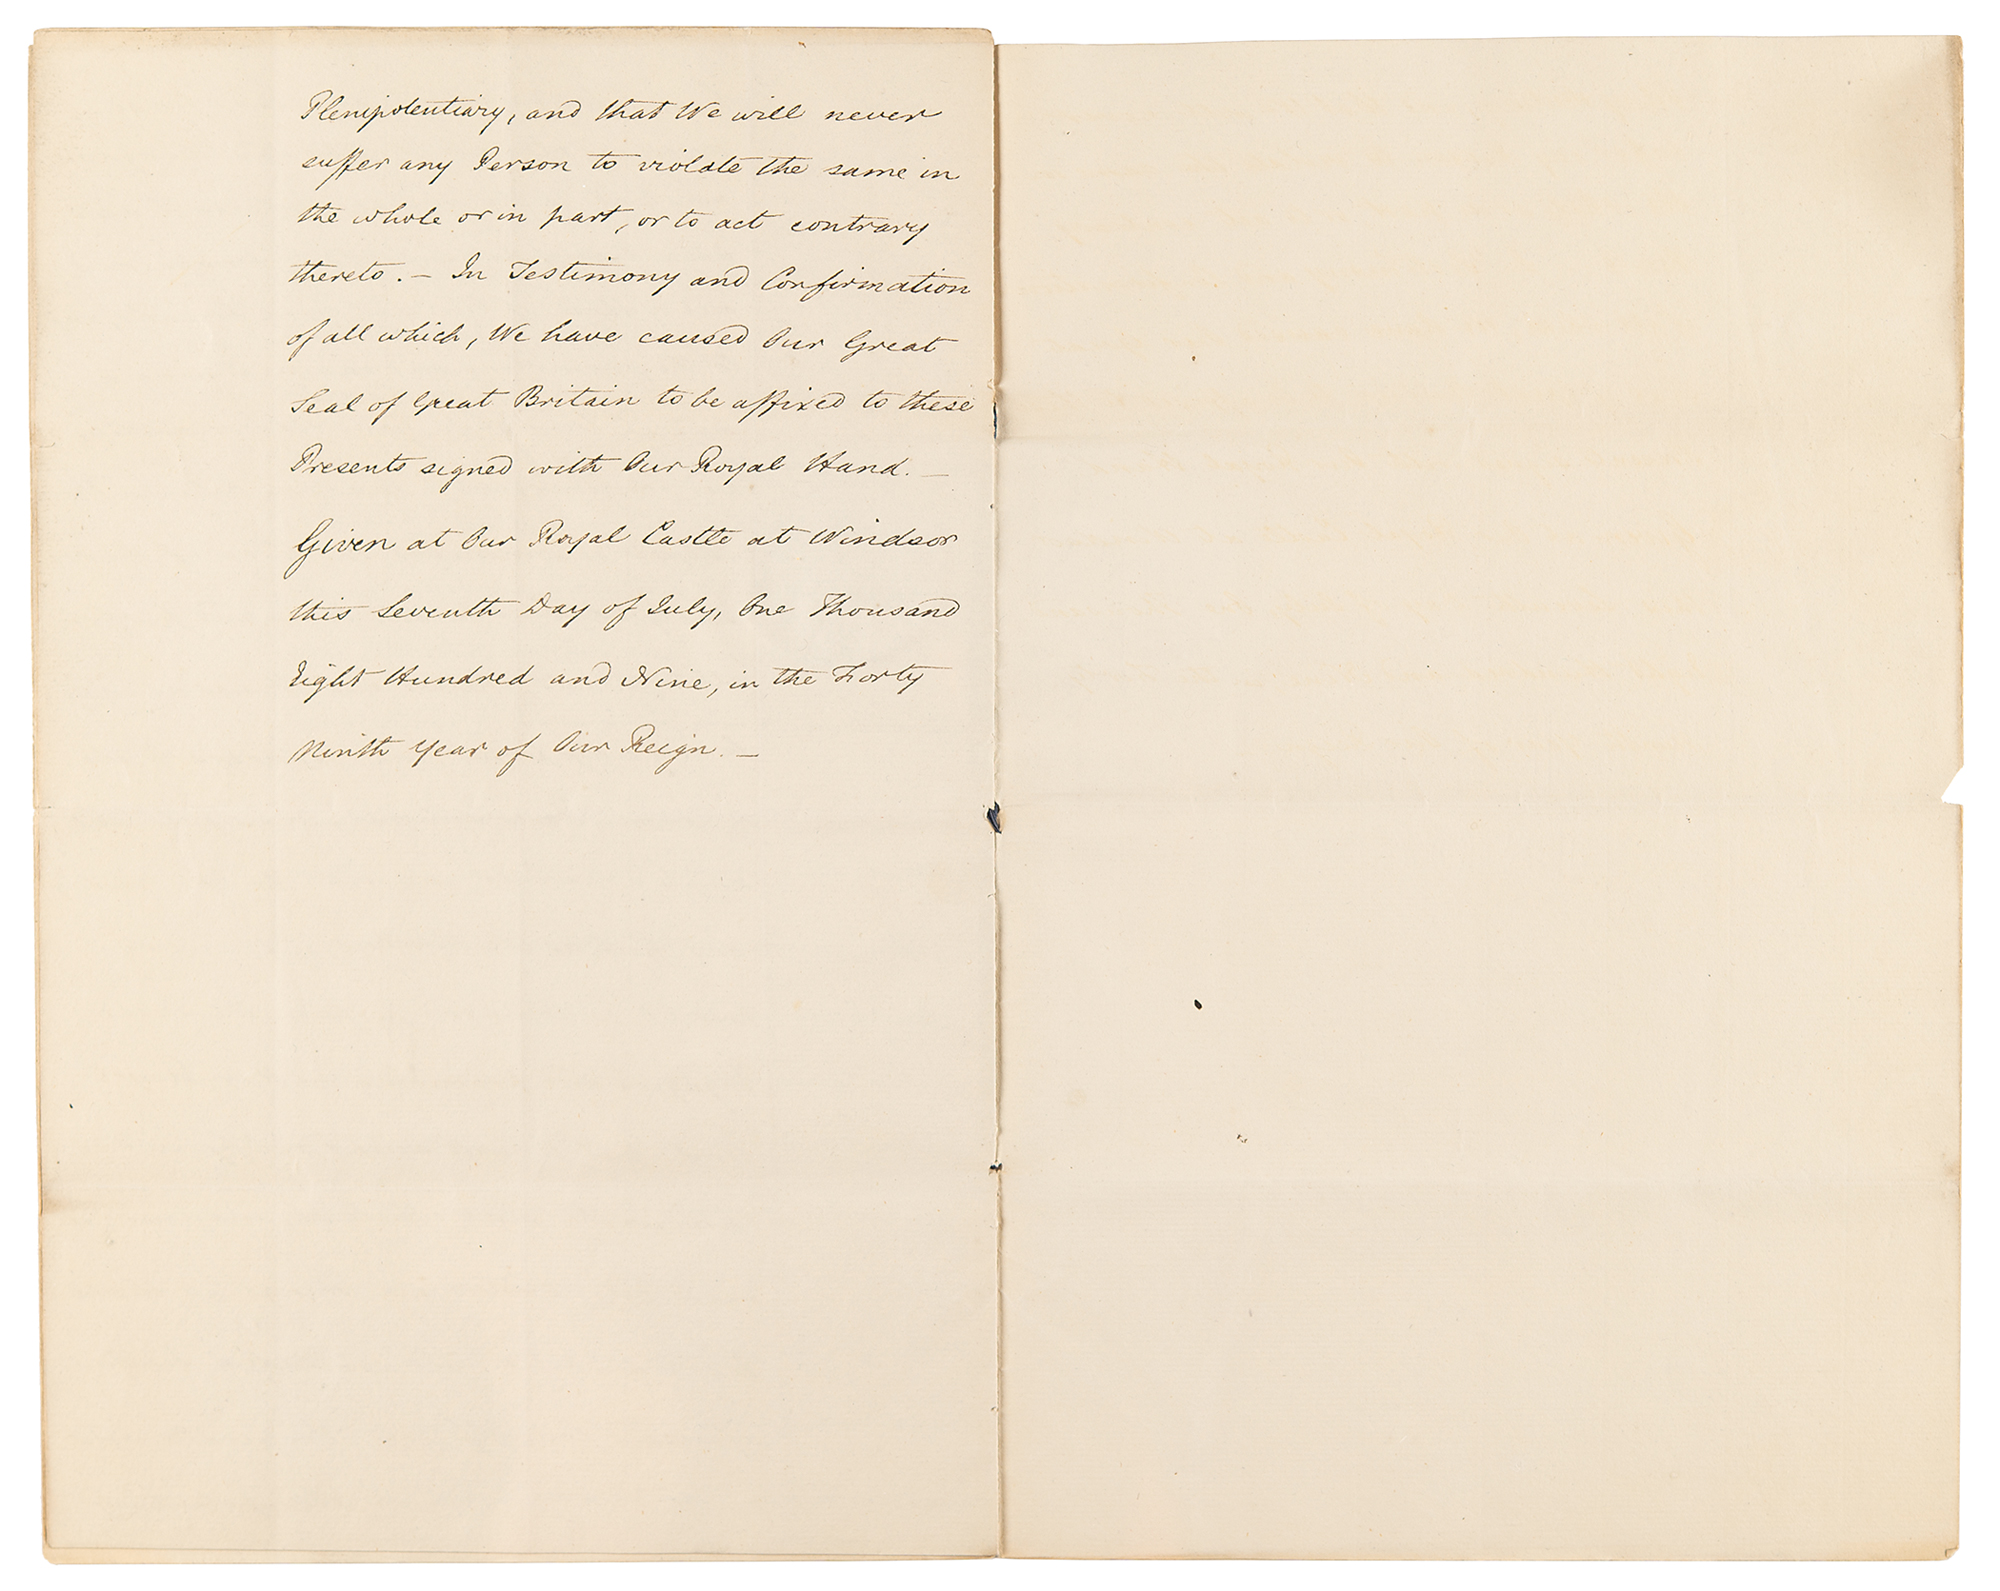 Plenipotentiary, and that We will never
suffer any Person to violate the same in
the whole or in part, or to act contrary
thereto. — In Testimony and Confirmation
of all which, We have caused Our Great
Seal of Great Britain to be affixed to these
Presents signed with Our Royal Hand. —
Given at Our Royal Castle at Windsor
this Seventh Day of July, One Thousand
Eight Hundred and Nine, in the Forty
Ninth Year of Our Reign. —